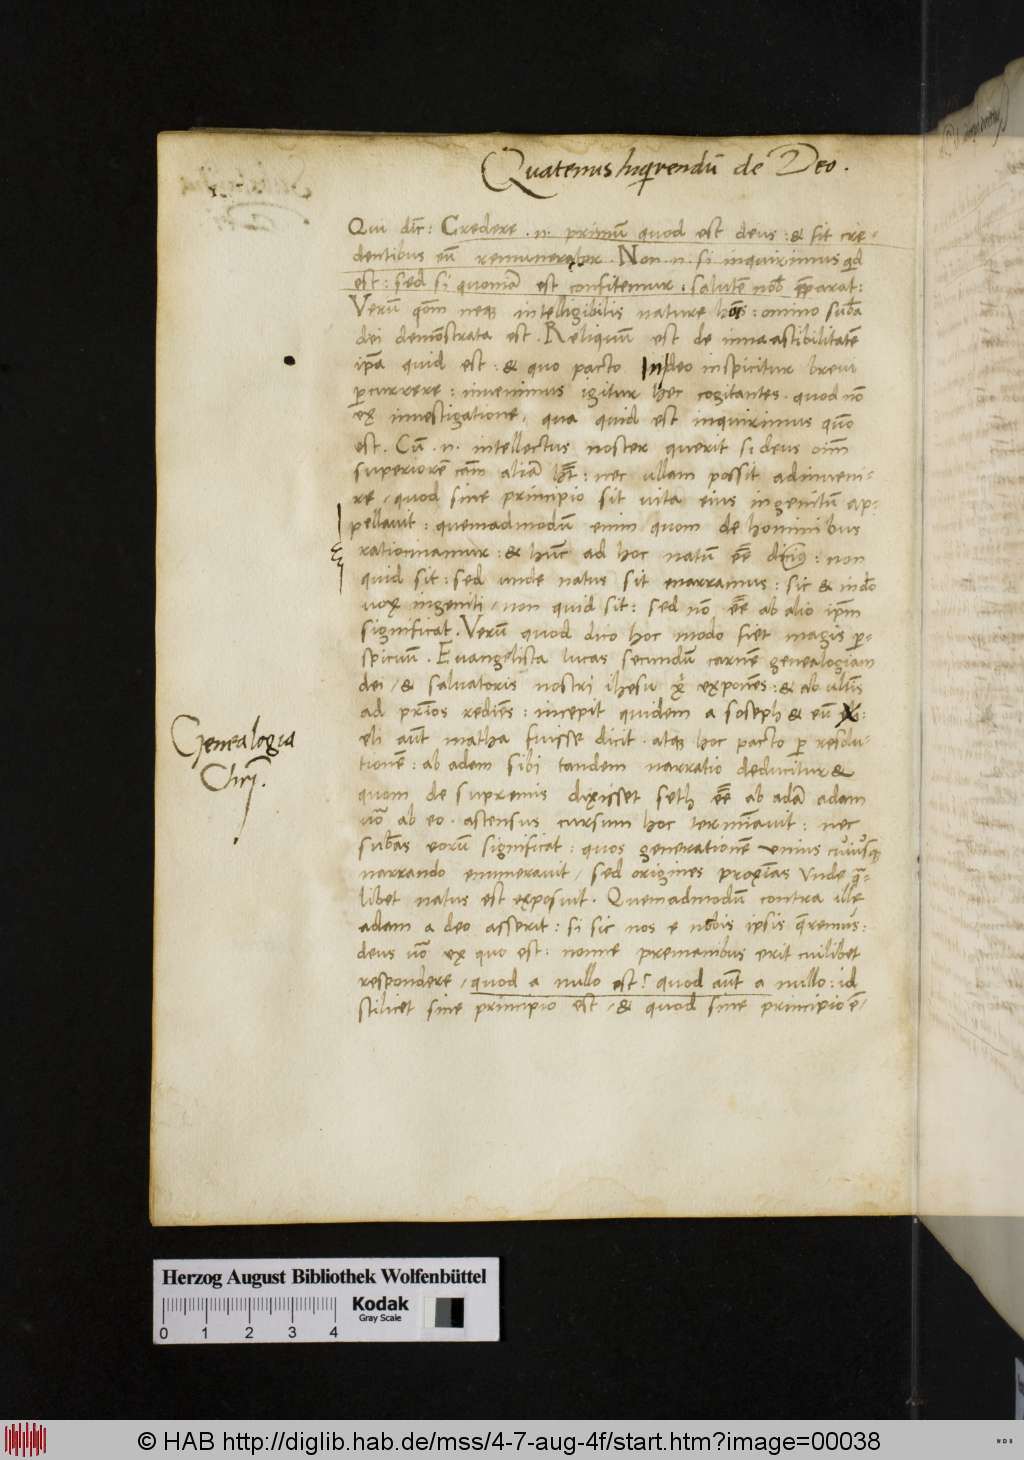 Quatenus Inqrendū de Deo.
Qui dic̄: Credere .n. primū quod est deus: & sit cre-
dentibus eū remunerator. Non .n. si inquirimus qd
est: sed si quoniā est confitemur: salutē nob̄ preparat:
Verū qm̄ neqꝫ intelligibilis nature hoīs: omino suba
dei demōstrata est. Reliquū est de
ipā quid est: & quo pacto In deo inspicitur breui
percurrere: inuenimus igitur hec cogitantes. quod nō
ex inuestigatione, qua quid est inquirimus quō
est. Cū .n. intellectus noster querit si deus oīm
superiorē cām aliā ht̄: nec ullam possit adinueni-
re, quod sine principio sit uita eius ingenitū ap-
pellauit: quemadmodū enim quom de hominibus
ratiocinamur: & hūc ad hoc natū eē dicimꝰ: non
quid sit: sed unde natus sit enarramus: sic &
uox ingeniti, non quid sit: sed nō eē ab alio ipm̄
significat. Verū quod dico hoc modo fiet magis per-
spicuū. Euangelista lucas secundū carnē genealogiam
dei, & saluatoris nostri ihesu xp̄i exponēs: & ab
ad prīos rediēs: incepit quidem a Ioseph & eū
Genealogia
Chrī.
eli aūt matha fuisse dicit. atqꝫ hoc pacto per resolu-
tionē: ab adam sibi tandem narratio deducitur &
quom de supremis dixisset seth eē ab adā adam
uo ab eo. astensus cursum hoc termīauit: nec
subas eorū significat: quos generationē enius cuiusqꝫ
narrando enumerauit, sed origines proxīas Vnde
libet natus est exposuit. Quemadmodū contra ille
adam a deo asserit: si sic nos e nobis ipsis qremus:
deus uo ex quo est: nonne premanibus erit cuilibet
respondere, quod a nullo est? quod aūt a nullo: id
scilicet sine principio est, & quod sine principio ē,
Herzog August Bibliothek Wolfenbüttel
Kodak
Gray Scale
0 1 2 3 4
© HAB http://diglib.hab.de/mss/4-7-aug-4f/start.htm?image=00038